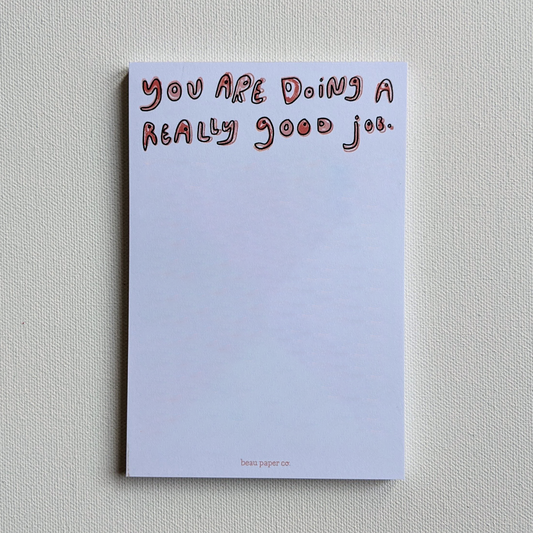 YOU ARE DOiNg A
REALLY gooD joB.
beau paper co.